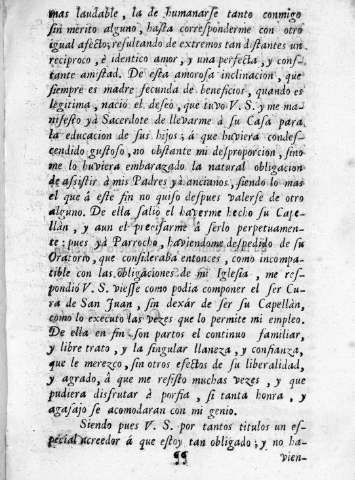 mas laudable, la de humanarse tanto conmigo
sin merito alguno, hasta corresponderme con otro
igual afecto; resultando de extremos tan distantes un
reciproco, è identico amor, y una perfecta, y cons-
tante amistad. De esta amorosa inclinacion, que
siempre es madre fecunda de beneficios, quando es
legitima, naciò el deseo, que tuvo V. S. y me ma-
nifesto yà Sacerdote de llevarme à su Casa para
la educacion de sus hijos; á que huviera condes-
cendido gustoso, no obstante mi desproporcion, sino
me lo huviera embarazado la natural obligacion
de assistir à mis Padres yà ancianos, siendo lo mas
el que á este fin no quiso despues valerse de otro
alguno. De ella saliò el haverme hecho su Cape-
llàn, y aun el precisarme à serlo perpetuamen-
te: pues yà Parrocho, haviendome despedido de su
Oratorio, que consideraba entonces, como incompa-
tible con las obligaciones de mi Iglesia, me res-
pondiò V. S. viesse como podia componer el ser Cu-
ra de San Juan, sin dexár de ser su Capellàn,
como lo executo las vezes que lo permite mi empleo.
De ella en fin son partos el continuo familiar,
y libre trato, y la singular llaneza, y confianza,
que le merezco, sin otros efectos de su liberalidad,
y agrado, à que me resisto muchas vezes, y que
pudiera disfrutar à porfia, si tanta honra, y
agasajo se acomodaran con mi genio.
Siendo pues V. S. por tantos titulos un es-
pecial acreedor á que estoy tan obligado; y no ha-
¶¶ vien-